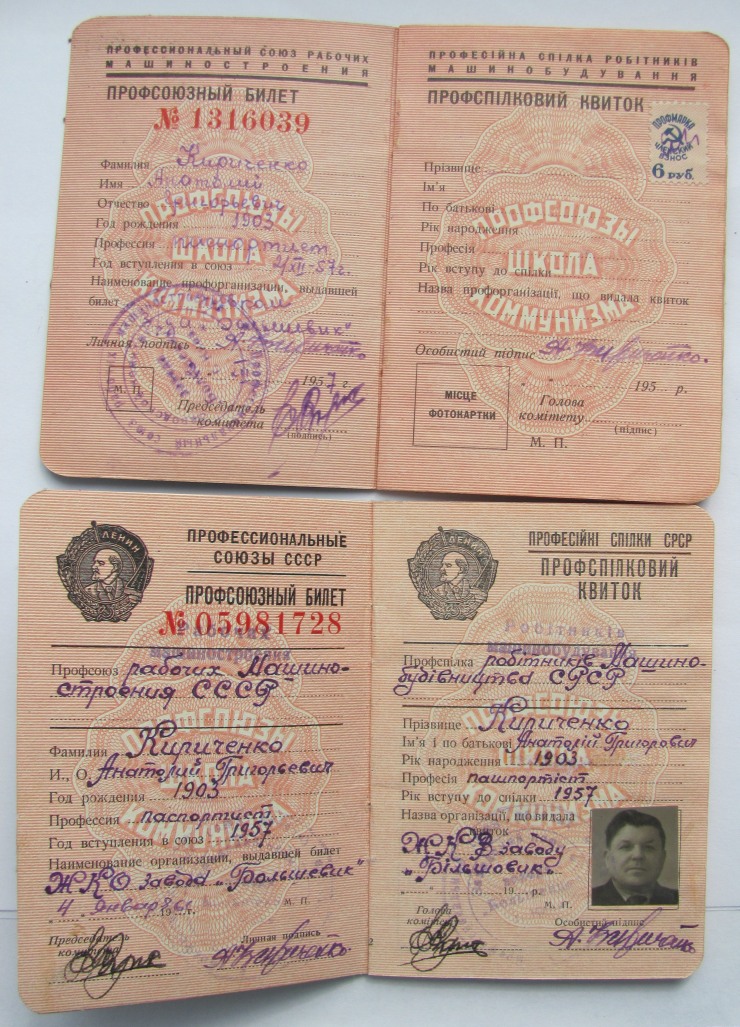 ПРОФЕССИОНАЛЬНЫЙ СОЮЗ РАБОЧИХ
МАШИНОСТРОЕНИЯ
ПРОФСОЮЗНЫЙ БИЛЕТ
№ 1316039
Фамилия Кириченко
Имя Анатолий
Отчество Григорьевич
Год рождения 1903
Профессия паспортист
Год вступления в союз 4/XII-57г.
Наименование профорганизации, выдавшей
билет
"Большевик"
Личная подпись
1957 г.
М. П.
Председатель
комитета
(подпись)
ПРОФСОЮЗЫ
ШКОЛА
КОММУНИЗМА
ПРОФЕСІЙНА СПІЛКА РОБІТНИКІВ
МАШИНОБУДУВАННЯ
ПРОФСПІЛКОВИЙ КВИТОК
ПРОФМАРКА
ЧЛЕНСКИЙ
ВЗНОС
6 РУБ.
Прізвище
Ім'я
По батькові
Рік народження
Професія
Рік вступу до спілки
Назва профорганізації, що видала квиток
Особистий підпис
" " 195 р.
МІСЦЕ
ФОТОКАРТКИ
Голова
комітету
(підпис)
М. П.
ПРОФСОЮЗЫ
ШКОЛА
КОММУНИЗМА
ЛЕНИН
ПРОФЕССИОНАЛЬНЫЕ
СОЮЗЫ СССР
ПРОФСОЮЗНЫЙ БИЛЕТ
№ 05981728
Рабочих
машиностроения
Профсоюз рабочих Машино-
строения СССР
Фамилия Кириченко
И., О. Анатолий Григорьевич
Год рождения 1903
Профессия паспортист
Год вступления в союз 1957
Наименование организации, выдавшей билет
ЖКО завода "Большевик"
4 января 196 г.
М. П.
Председатель
комитета
Личная подпись
ПРОФСОЮЗЫ
ШКОЛА
КОММУНИЗМА
2
ЛЕНИН
ПРОФЕСІЙНІ СПІЛКИ СРСР
ПРОФСПІЛКОВИЙ
КВИТОК
Робітників
машинобудування
Профспілка робітників Машино-
будівництва СРСР
Прізвище Кириченко
Ім'я і по батькові Анатолій Григорович
Рік народження 1903
Професія пашпортіст
Рік вступу до спілки 1957
Назва організації, що видала
квиток
ЖКВ заводу
"Більшовик"
" " 19 р.
М. П.
Голова
комітету
Особистий підпис